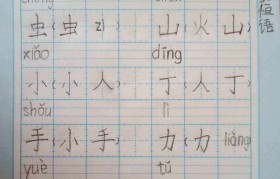 虫(虫 zi) 山(火山)
xiǎo dīng
小(小人) 丁(人丁)
shǒu lì
手(小手) 力(力 liàng)
yuè tǔ
语